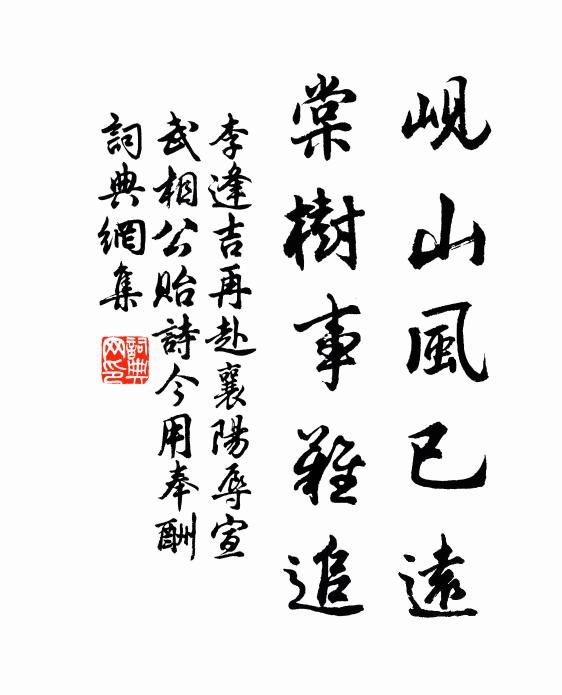 峴山風已遠
棠樹事難追
李逢吉再赴襄陽辱宣
武相公貽詩今用奉酬
詞典網集
詞典
网印